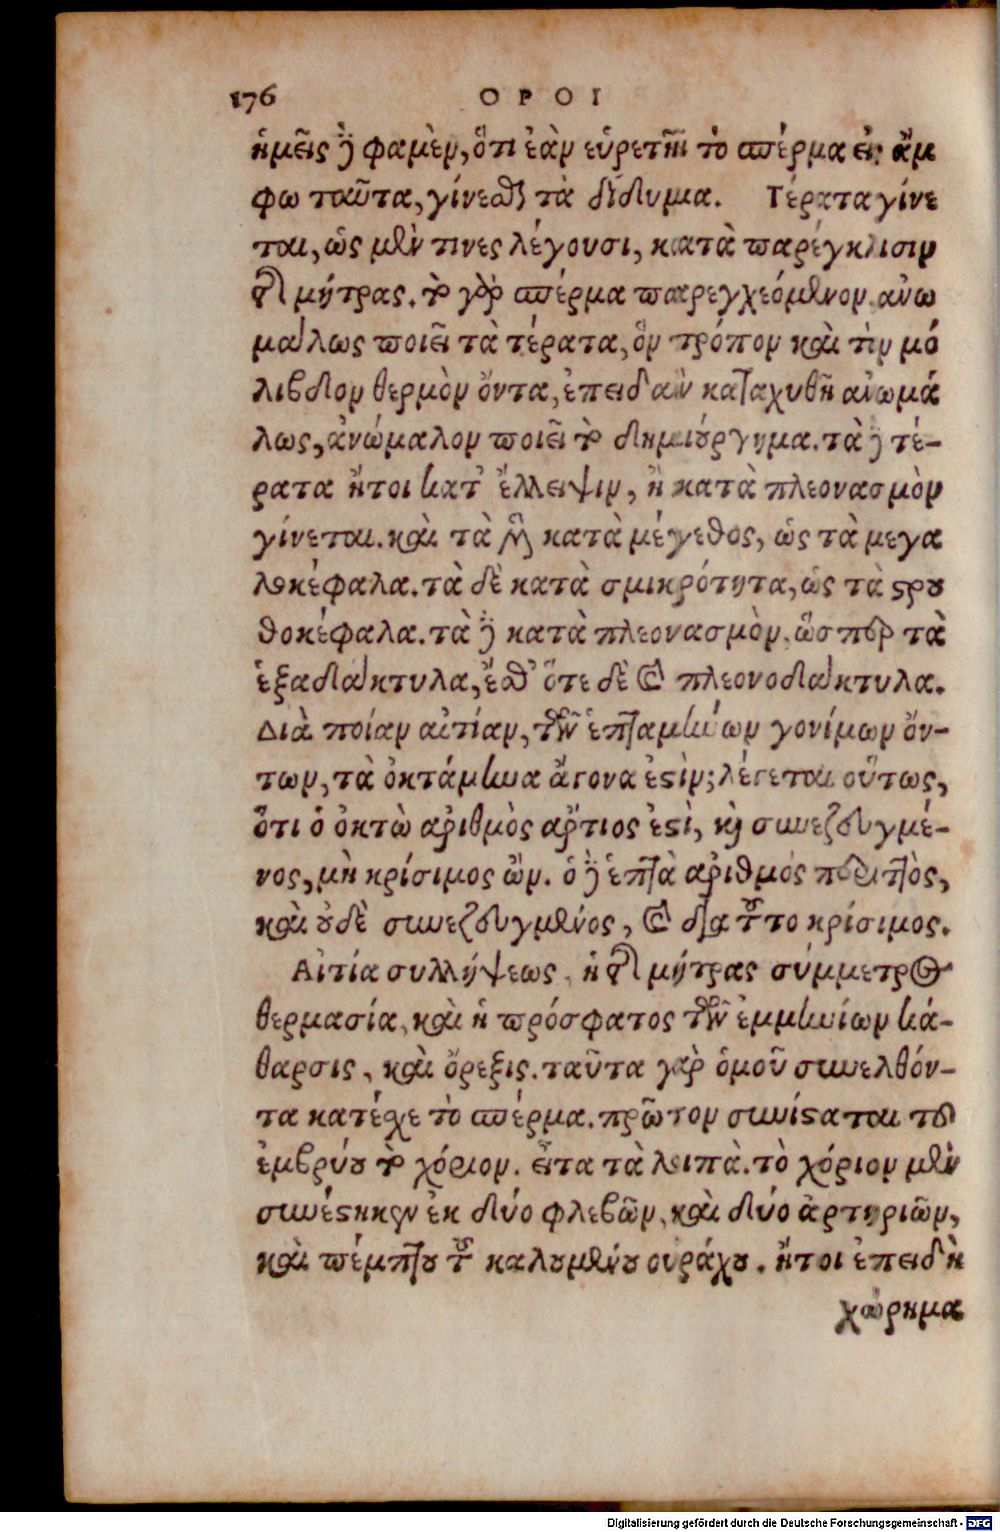 176 ΟΡΟΙ
ἡμεῖς δὲ φαμὲν, ὅτι ἐὰν εὑρεθῇ τὸ σπέρμα εἰς ἄμ
φω ταῦτα, γίνεσθαι τὰ δίδυμα. Τέρατα γίνε
ται, ὡς μὲν τινες λέγουσι, κατὰ παρέγκλισιν
τῆς μήτρας. τὸ γὰρ σπέρμα παρεγχεόμενον ἀνω
μάλως ποιεῖ τὰ τέρατα, ὃν τρόπον καὶ τὸν μό
λιβδον θερμὸν ὄντα, ἐπειδ' ἂν καταχυθῇ ἀνωμά
λως, ἀνώμαλον ποιεῖ τὸ δημιούργημα. τὰ δὲ τέ-
ρατα ἤτοι κατ' ἔλλειψιν, ἢ κατὰ πλεονασμὸν
γίνεται. καὶ τὰ μὲν κατὰ μέγεθος, ὡς τὰ μεγα
λοκέφαλα. τὰ δὲ κατὰ σμικρότητα, ὡς τὰ στρου
θοκέφαλα. τὰ δὲ κατὰ πλεονασμὸν, ὥσπερ τὰ
ἑξαδάκτυλα, ἔσθ' ὅτε δὲ καὶ πλεονοδάκτυλα.
Διὰ ποίαν αἰτίαν, τῶν ἑπταμήνων γονίμων ὄν-
των, τὰ ὀκτάμηνα ἄγονα ἐστὶν; λέγεται οὕτως,
ὅτι ὁ ὀκτὼ ἀριθμὸς ἄρτιος ἐστὶ, καὶ συνεζευγμέ-
νος, μὴ κρίσιμος ὤν. ὁ δὲ ἑπτὰ ἀριθμὸς περιττὸς,
καὶ οὐδὲ συνεζευγμένος, καὶ διὰ τοῦτο κρίσιμος.
Αἰτία συλλήψεως, ἡ τῆς μήτρας σύμμετρος
θερμασία, καὶ ἡ πρόσφατος τῶν ἐμμηνίων κά-
θαρσις, καὶ ὄρεξις. ταῦτα γὰρ ὁμοῦ συνελθόν-
τα κατέχε τὸ σπέρμα. πρῶτον συνίσταται τοῦ
ἐμβρύου τὸ χόριον. εἶτα τὰ λειπὰ. τὸ χόριον μὲν
συνέστηκεν ἐκ δύο φλεβῶν, καὶ δύο ἀρτηριῶν,
καὶ πέμπτου τοῦ καλουμένου οὐράχου. ἤτοι ἐπειδὴ
χώρημα
Digitalisierung gefördert durch die Deutsche Forschungsgemeinschaft - DFG